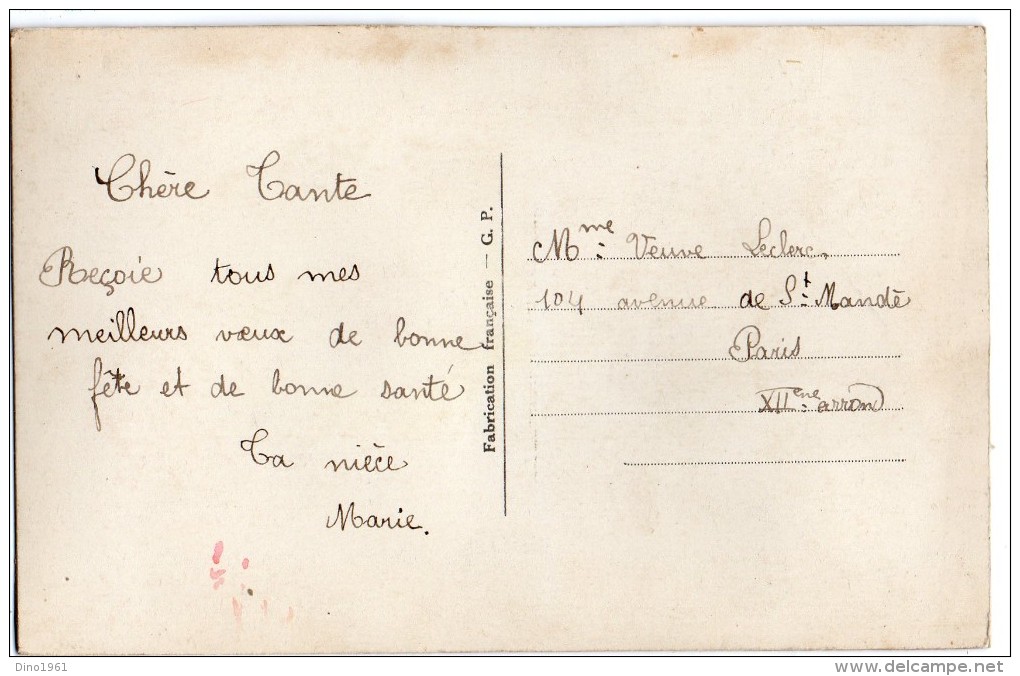 Chère Tante
Reçoie tous mes
meilleurs vœux de bonne
fête et de bonne santé
Ta nièce
Marie.
Fabrication française — G. P.
Mme Veuve Leclerc.
104 avenue de St Mandé
Paris
XIIeme arron
Dino1961
www.delcampe.net